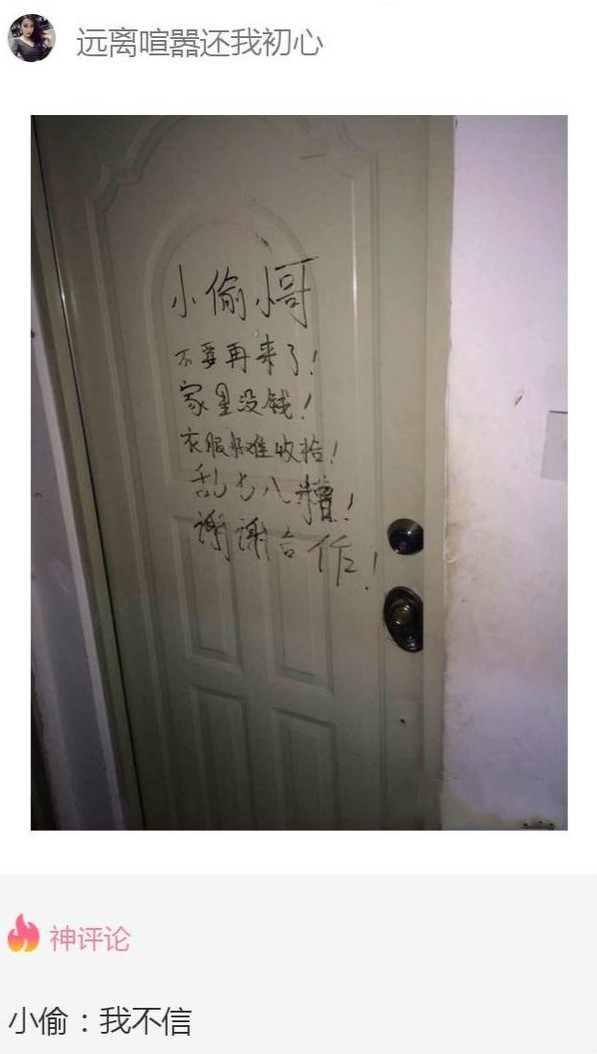 远离喧嚣还我初心
小偷小哥
不要再来了!
家里没钱!
衣服好难收拾!
乱七八糟!
谢谢合作!
神评论
小偷：我不信